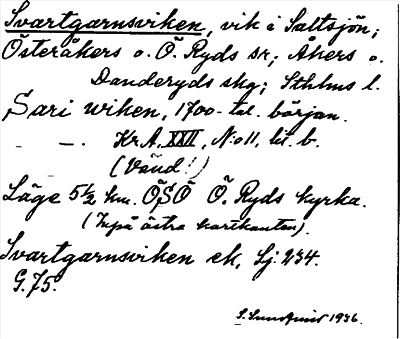 Svartgarnsviken, vik i Saltsjön;
Österåkers o. Ö. Ryds sr; Åkers o.
Danderyds skg; Sthlms l.
Sari wiken, 1700-tal. början.
— — . Kr.A. XXII, N:o 11, lit. b.
(Vänd!)
Läge 5 1/2 km. ÖSÖ Ö. Ryds kyrka.
(Inpå östra kartkanten).
Svartgarnsviken ek, Sj. 234.
G. 75.
S. Sundqvist 1936.